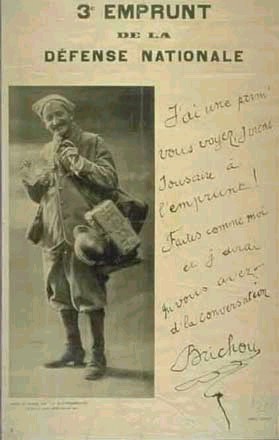 3e EMPRUNT
DE LA
DÉFENSE NATIONALE
J'ai une prim'
vous voyez, J'viens
Souscrire à
l'emprunt!
Faites comme moi
et j'dirai
qu'vous avez
d'la conversation
Brichou